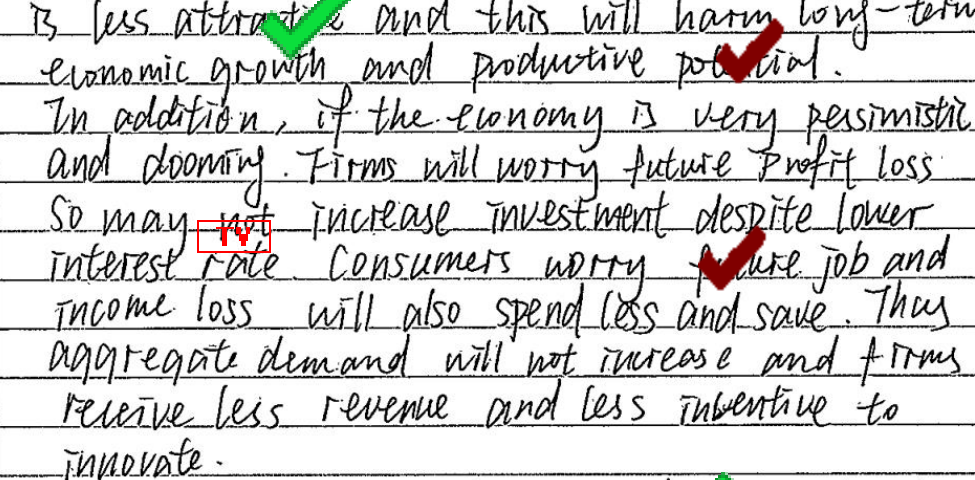 is less attractive and this will harm long-term
economic growth and productive potential.
In addition, if the economy is very pessimistic
and dooming. Firms will worry future Profit loss
So may not increase investment despite lower
TV
interest rate. Consumers worry future job and
income loss will also spend less and save. Thus
aggregate demand will not increase and firms
receive less revenue and less incentive to
innovate.